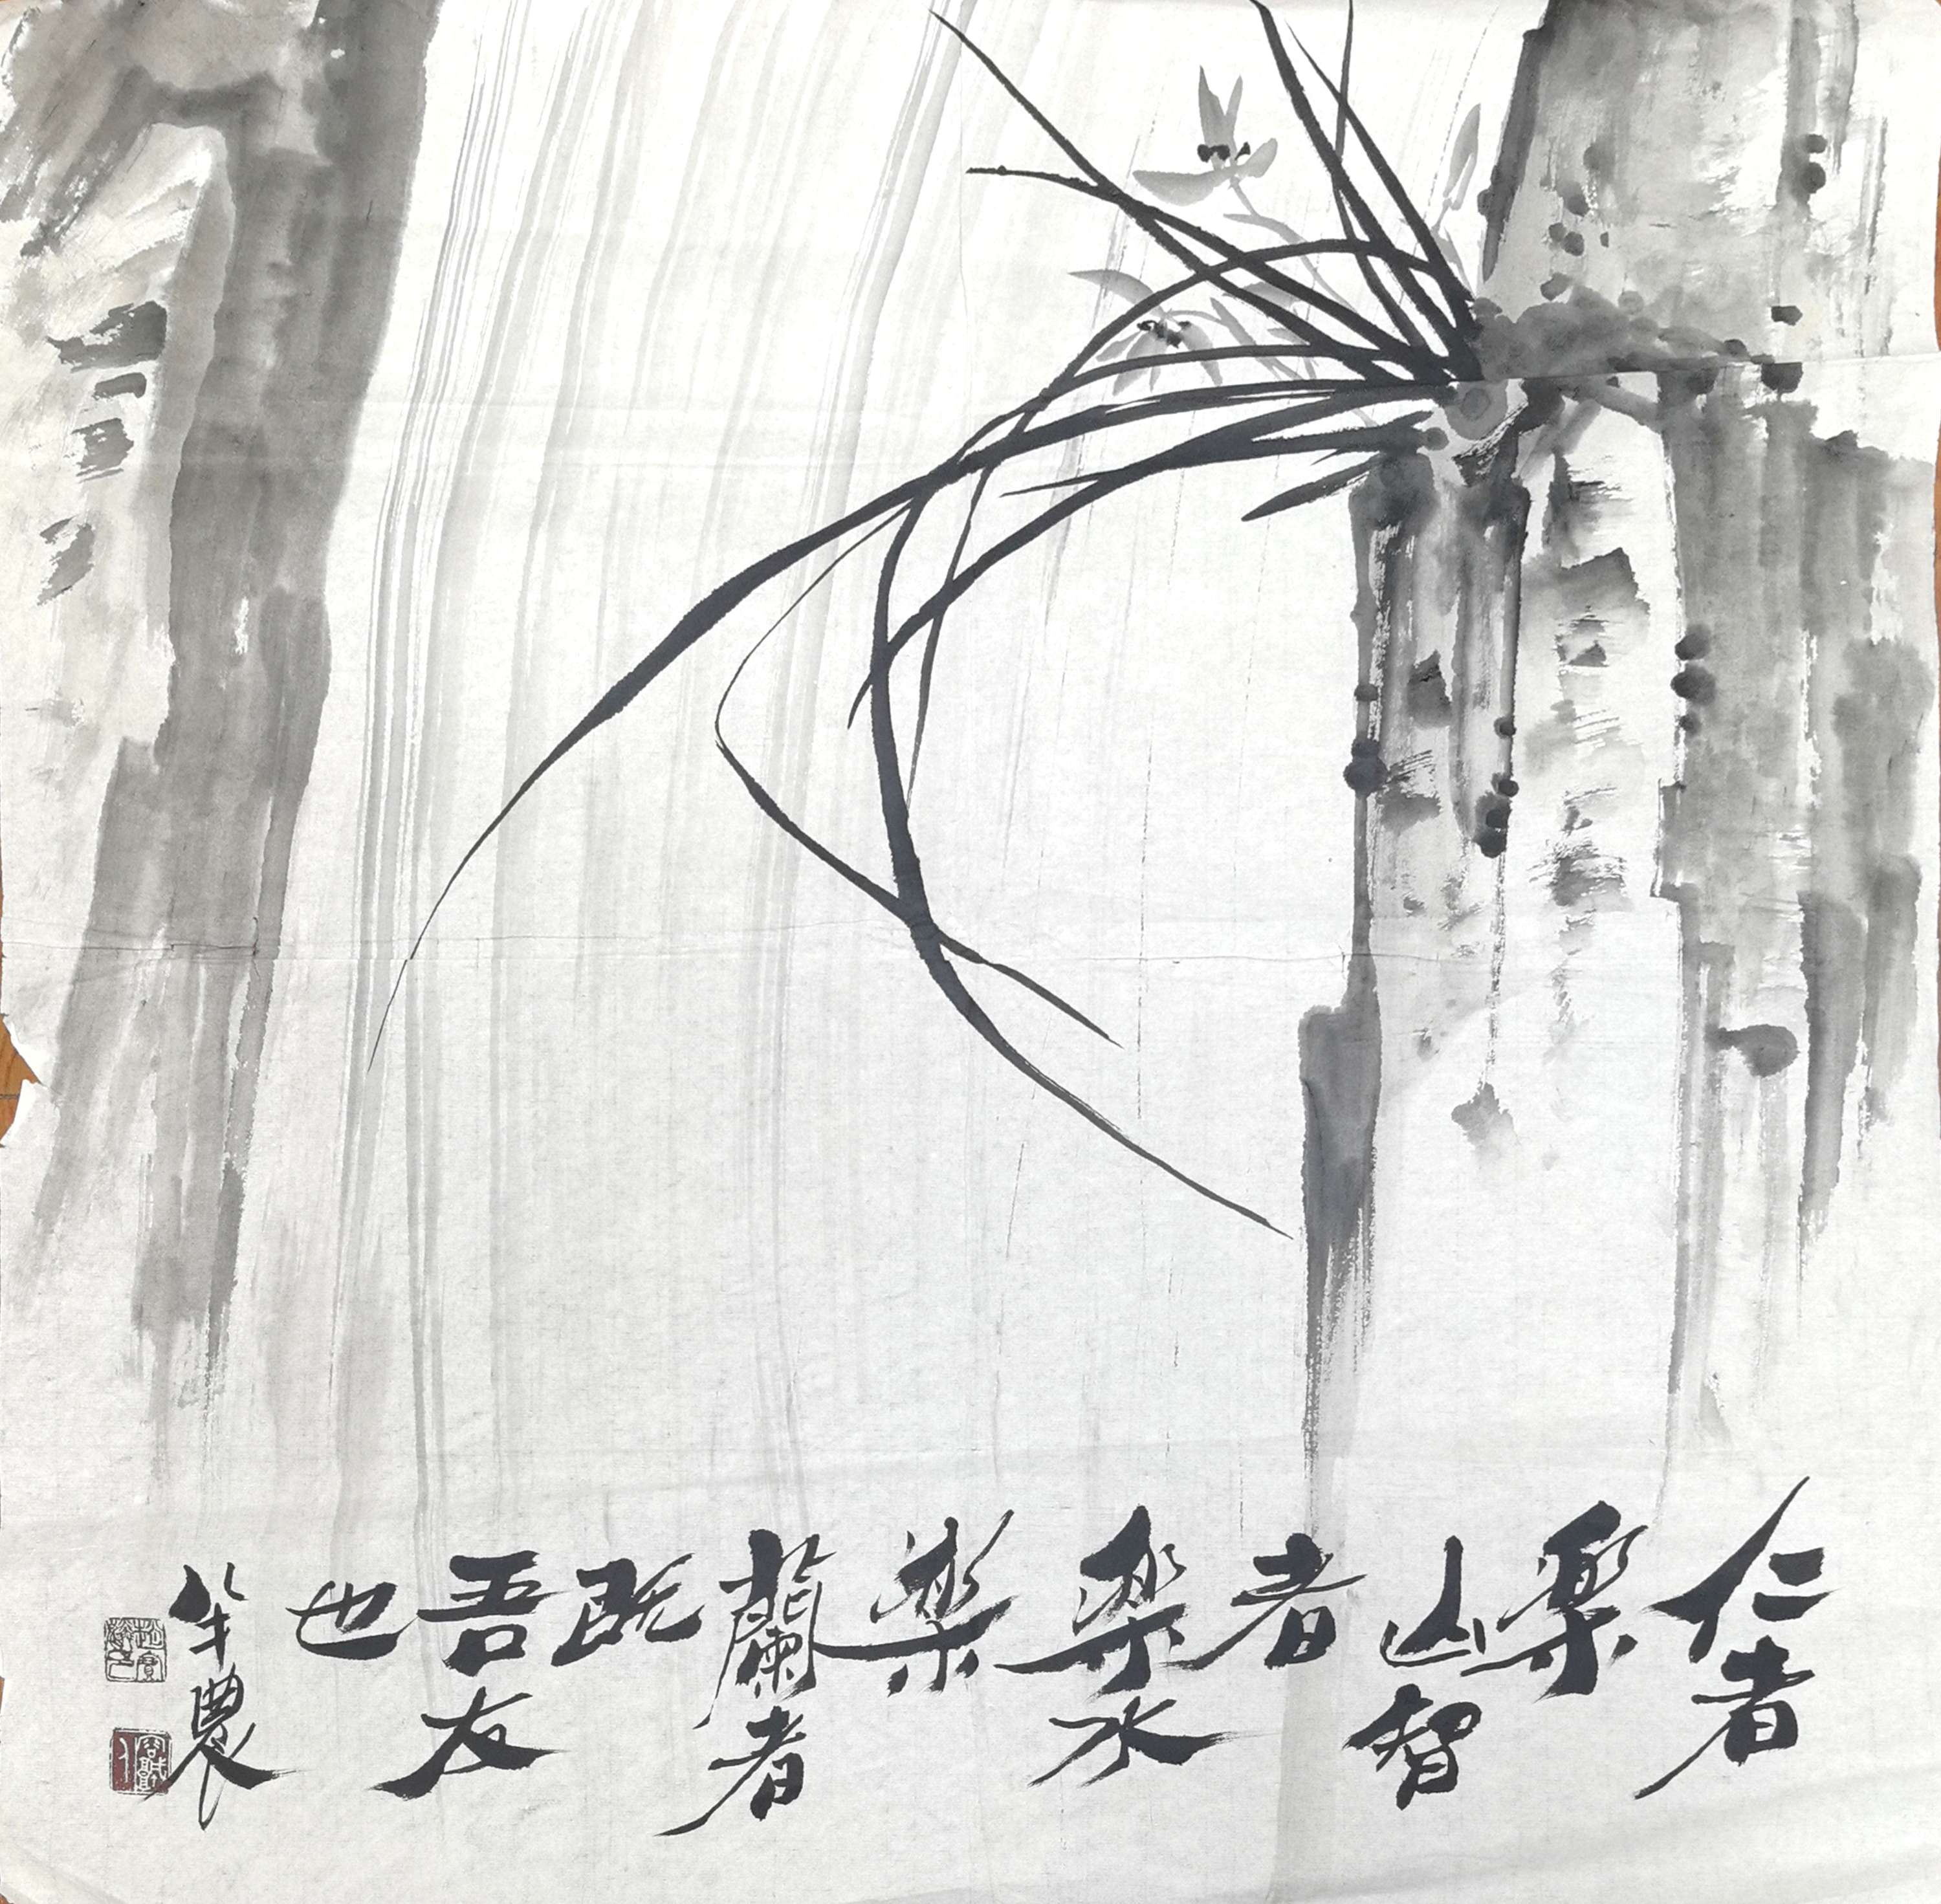 仁者
樂
山智
者
樂水
樂
蘭者
既
吾友
也
半農